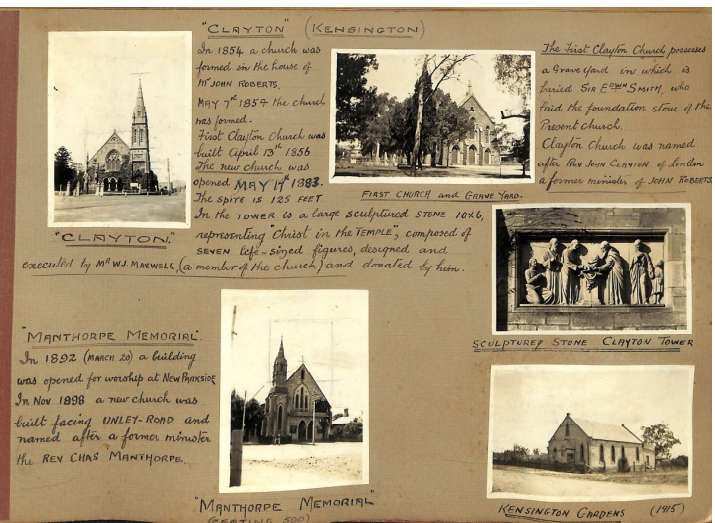 "CLAYTON" (KENSINGTON)
In 1854 a church was
formed in the house of
Mr JOHN ROBERTS.
MAY 7th 1854 the church
was formed.
First Clayton Church was
built April 13th 1856
The new church was
opened MAY 14th 1883.
The spire is 125 FEET
In the TOWER is a large sculptured STONE 10x6,
representing "Christ in the TEMPLE", composed of
SEVEN life-sized figures, designed and
executed by Mr W.J. MAXWELL, (a member of the church) and donated by him.
"CLAYTON."
FIRST CHURCH and GRAVE YARD.
The First Clayton Church, possesses
a Grave Yard in which is
buried SIR EDWN SMITH, who
laid the foundation stone of the
Present church.
Clayton Church was named
after Rev JOHN CLAYTON of London
a former minister of JOHN ROBERTS.
SCULPTURED STONE CLAYTON TOWER
"MANTHORPE MEMORIAL".
In 1892 (MARCH 20) a building
was opened for worship at NEW PARKSIDE
In Nov 1898 a new church was
built facing UNLEY-ROAD and
named after a former minister
the REV CHAS MANTHORPE.
"MANTHORPE MEMORIAL"
(SEATING 500)
KENSINGTON GARDENS (1915)